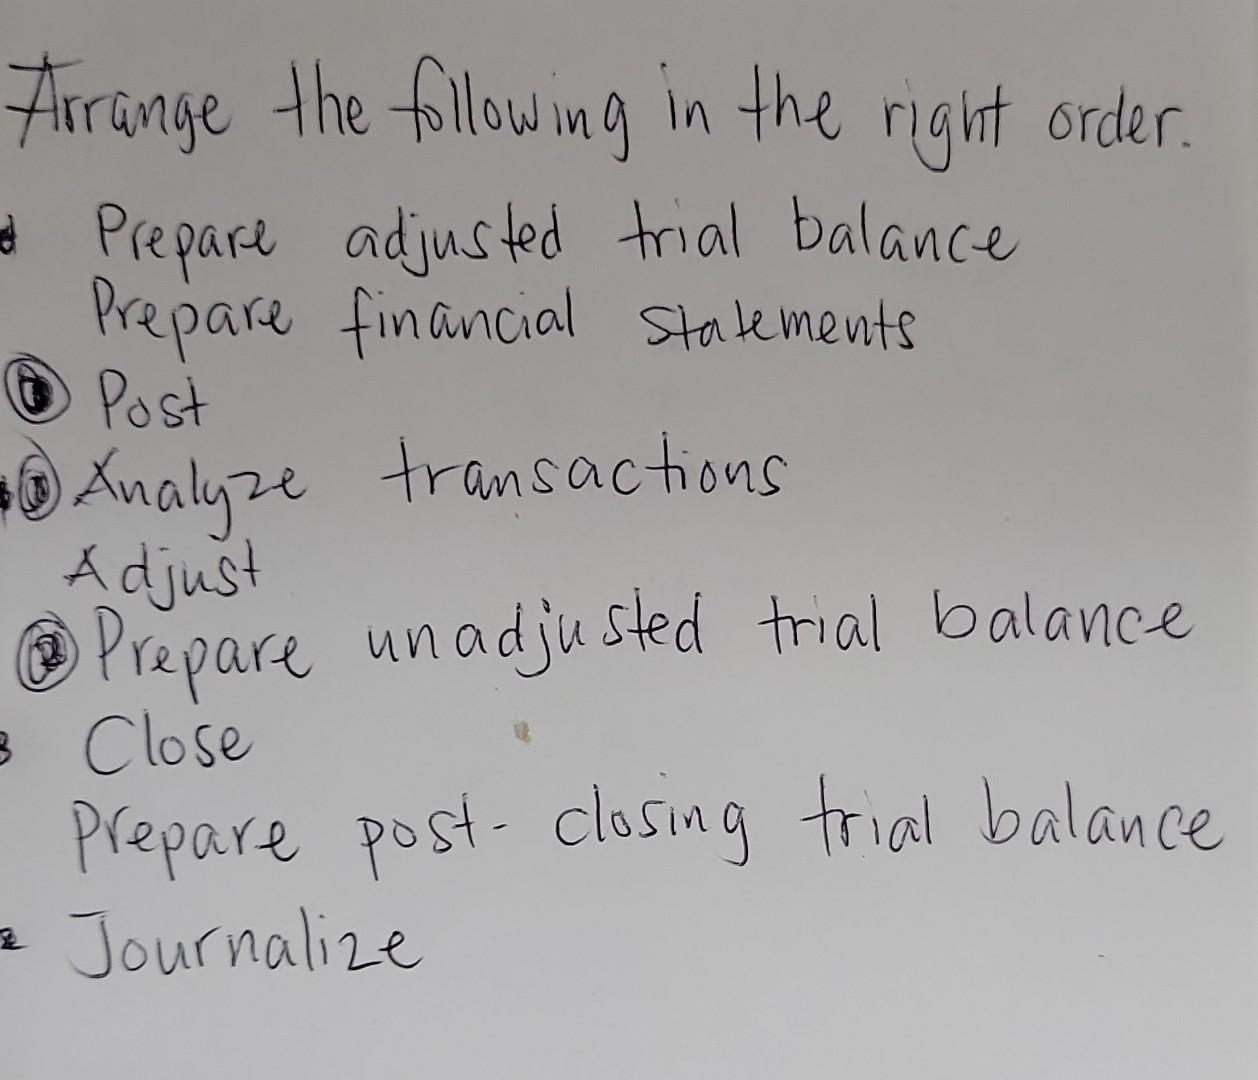 Arrange the following in the right order.
Prepare adjusted trial balance
Prepare financial statements
Post
Analyze transactions
Adjust
Prepare unadjusted trial balance
Close
Prepare post-closing trial balance
Journalize